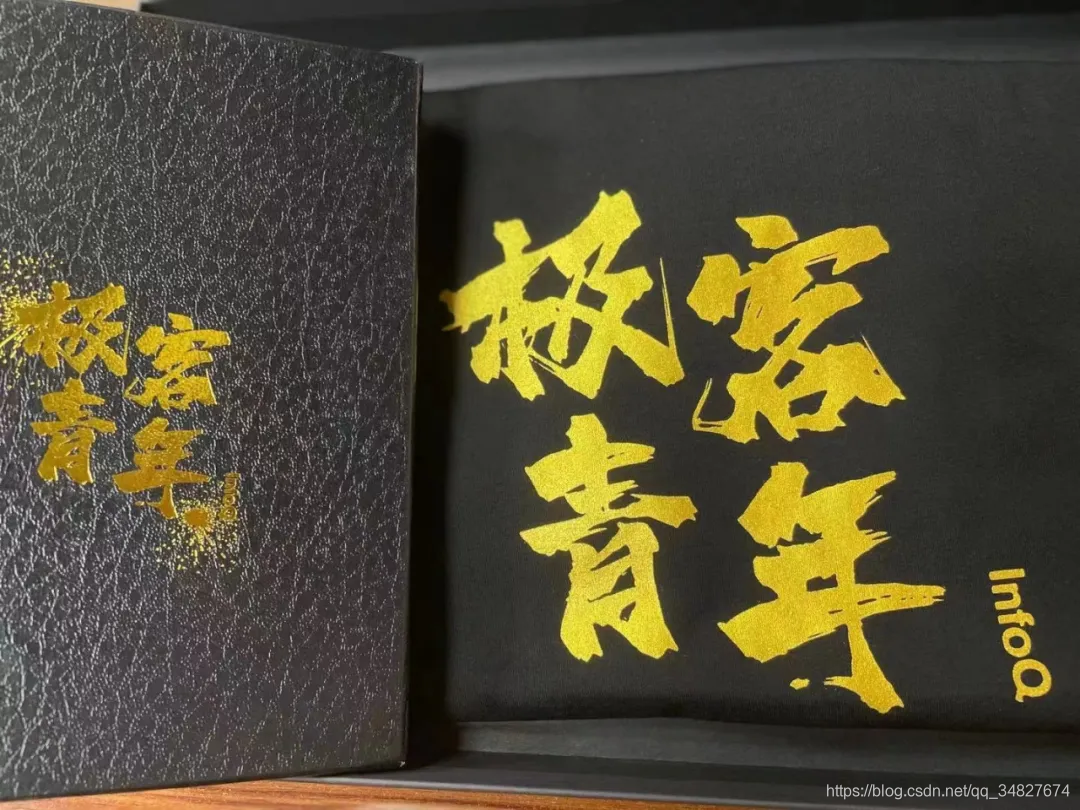 极客
青年
InfoQ
极客
青年
InfoQ
https://blog.csdn.net/qq_34827674